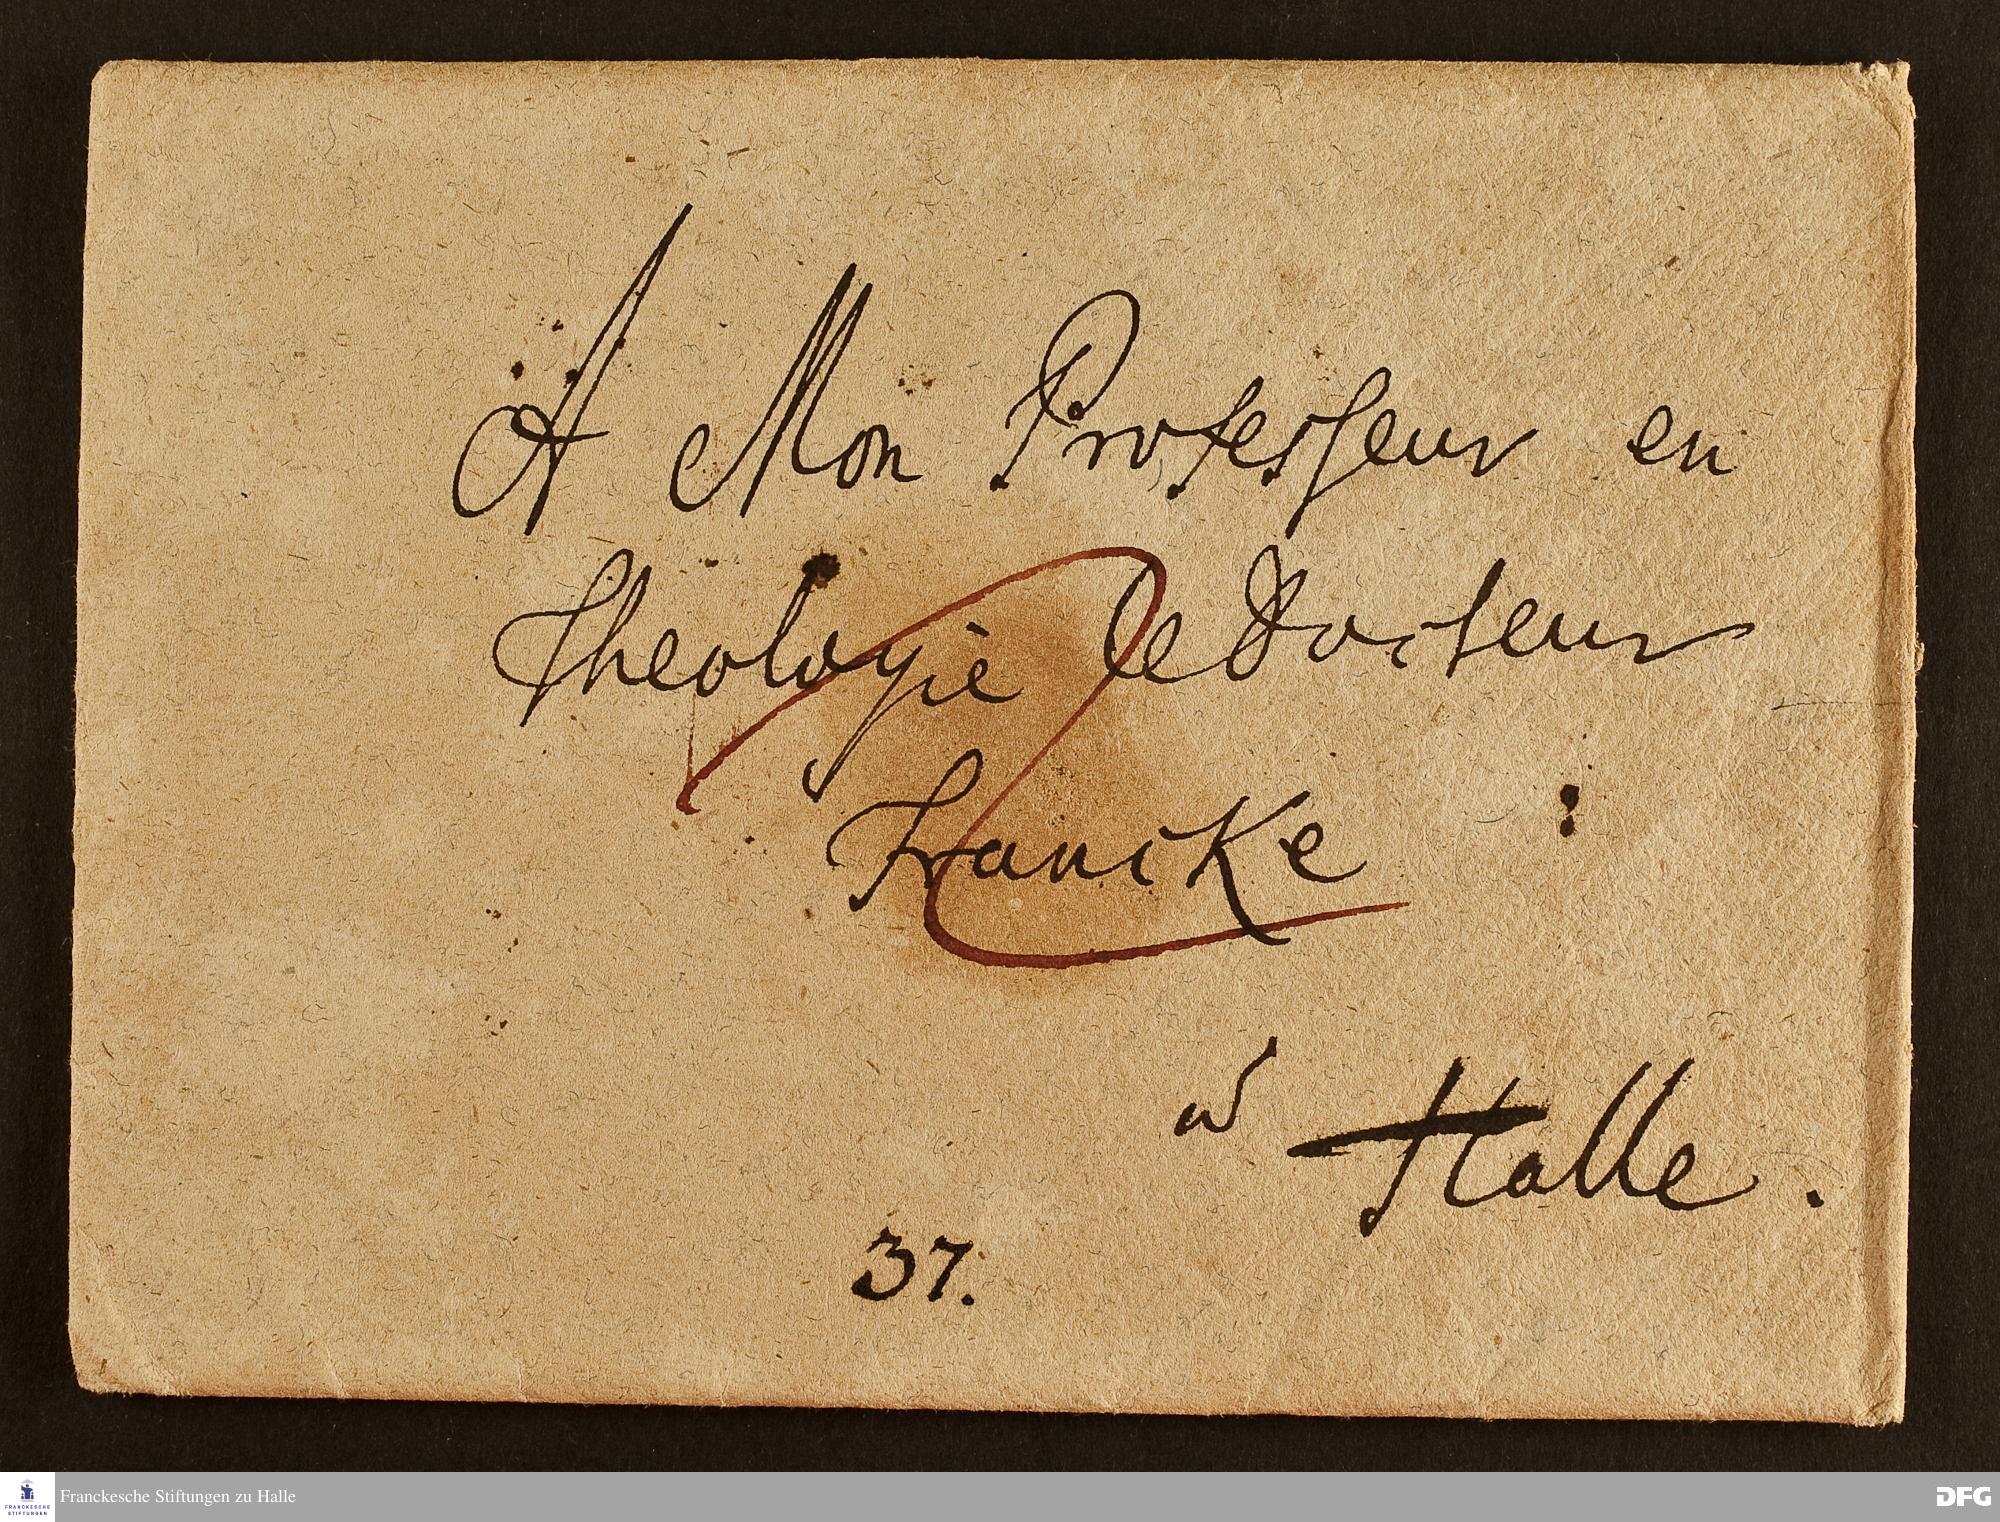 A Mon Professeur en
Theologie le Docteur
Francke
Halle.
37.
Franckesche Stiftungen zu Halle
FRANCKESCHE
STIFTUNGEN
DFG